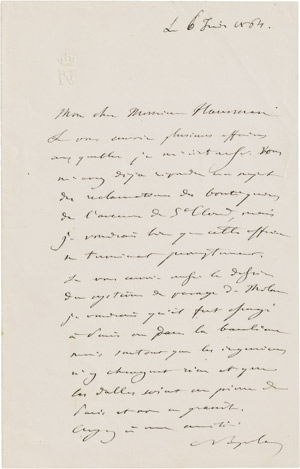 Le 6 Juin 1864.
Mon cher Monsieur Haussmann
Je vous envoie plusieurs affaires
auxquelles je m'intéresse. Vous
m'avez déjà répondu au sujet
des réclamations des boutiquiers
de l'avenue de St Cloud, mais
je voudrais bien que cette affaire
se terminat promptement.
Je vous envoie aussi le
du système de pavage de Milan
je voudrais qu'il fut essayé
à Paris ou dans la banlieue
mais surtout que les ingénieurs
n'y changent rien et que
les dalles soient en pierre de
Paris et non en granit.
Croyez à mon amitié
Napoléon